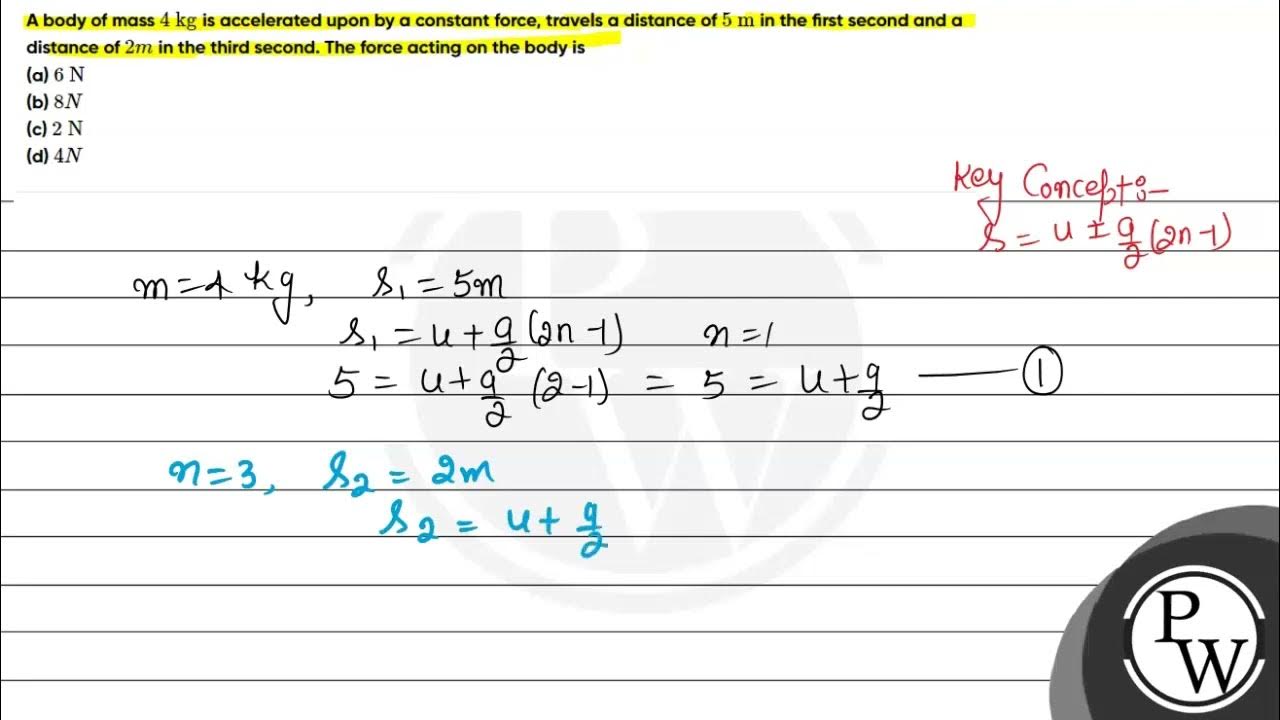 A body of mass 4 kg is accelerated upon by a constant force, travels a distance of 5 m in the first second and a
distance of 2m in the third second. The force acting on the body is
(a) 6 N
(b) 8N
(c) 2 N
(d) 4N
Key Concept:-
s = u ± a/2 (2n-1)
m = 4 kg, s₁ = 5m
s₁ = u + a/2 (2n-1) n=1
5 = u + a/2 (2-1) = 5 = u + a/2 —— ①
n=3, s₂ = 2m
s₂ = u + a/2
PW